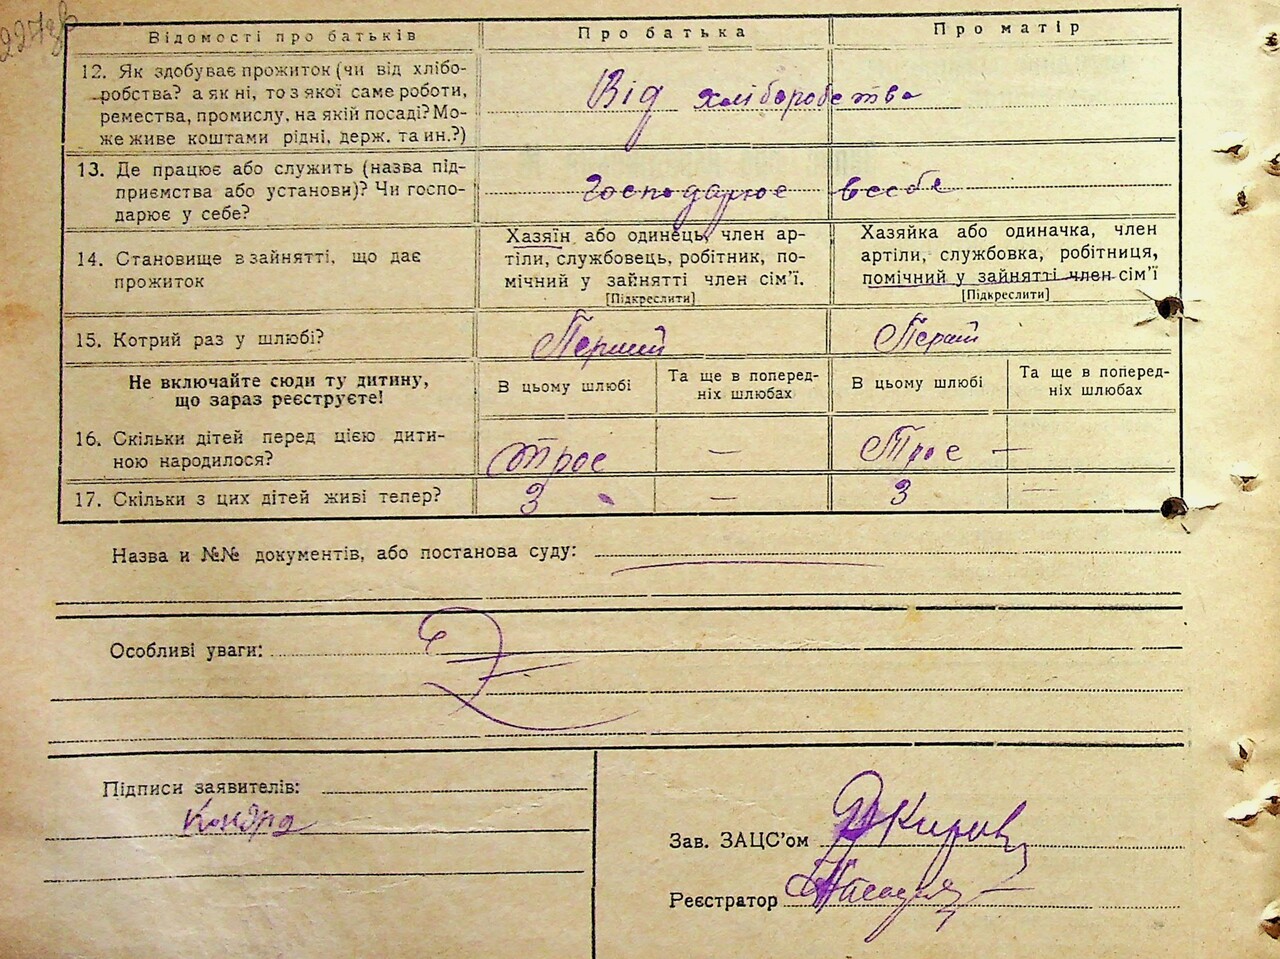 227зв
Відомості про батьків Про батька Про матір
12. Як здобуває прожиток (чи від хлібо-
робства? а як ні, то з якої саме роботи,
ремества, промислу, на якій посаді? Мо-
же живе коштами рідні, держ. та ин.?)
Від хліборобства
13. Де працює або служить (назва під-
приємства або установи)? Чи госпо-
дарює у себе?
Господарює в себе
14. Становище в зайнятті, що дає
прожиток
Хазяїн або одинець, член ар-
тіли, службовець, робітник, по-
мічний у зайнятті член сім'ї.
[Підкреслити]
Хазяйка або одиначка, член
артіли, службовка, робітниця,
помічний у зайнятті член сім'ї
[Підкреслити]
15. Котрий раз у шлюбі? Перший Перший
Не включайте сюди ту дитину,
що зараз реєструєте!
В цьому шлюбі
Та ще в поперед-
ніх шлюбах
В цьому шлюбі
Та ще в поперед-
ніх шлюбах
16. Скільки дітей перед цією дити-
ною народилося?
Троє — Троє —
17. Скільки з цих дітей живі тепер? 3 — 3 —
Назва и №№ документів, або постанова суду:
Особливі уваги:
Підписи заявителів:
Кондра
Зав. ЗАЦС'ом
Реєстратор